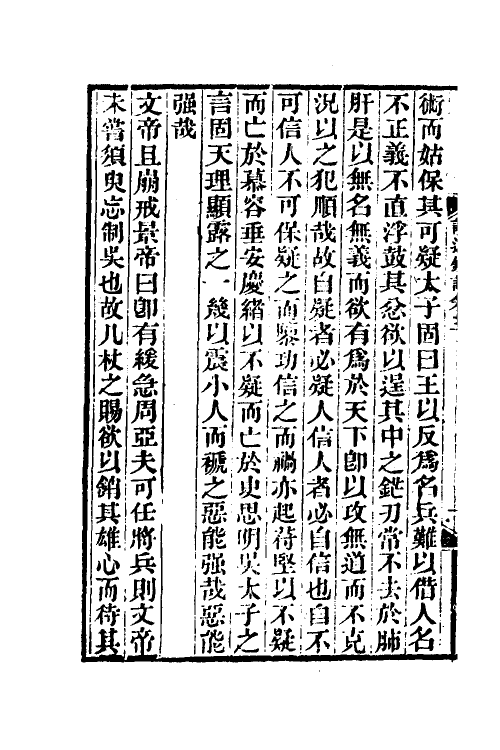 術而姑保其可疑太子固曰王以反爲名兵難以借人名
不正義不直浮鼓其忿欲以逞其中之鋩刃常不去於肺
肝是以無名無義而欲有爲於天下卽以攻無道而不克
況以之犯順哉故自疑者必疑人信人者必自信也自不
可信人不可保疑之而隳功信之而禍亦起苻堅以不疑
而亡於慕容垂安慶緒以不疑而亡於史思明吳太子之
言固天理顯露之一幾以震小人而褫之惡能强哉惡能
强哉
文帝且崩戒景帝曰卽有緩急周亞夫可任將兵則文帝
未嘗須臾忘制吳也故几杖之賜欲以銷其雄心而待其